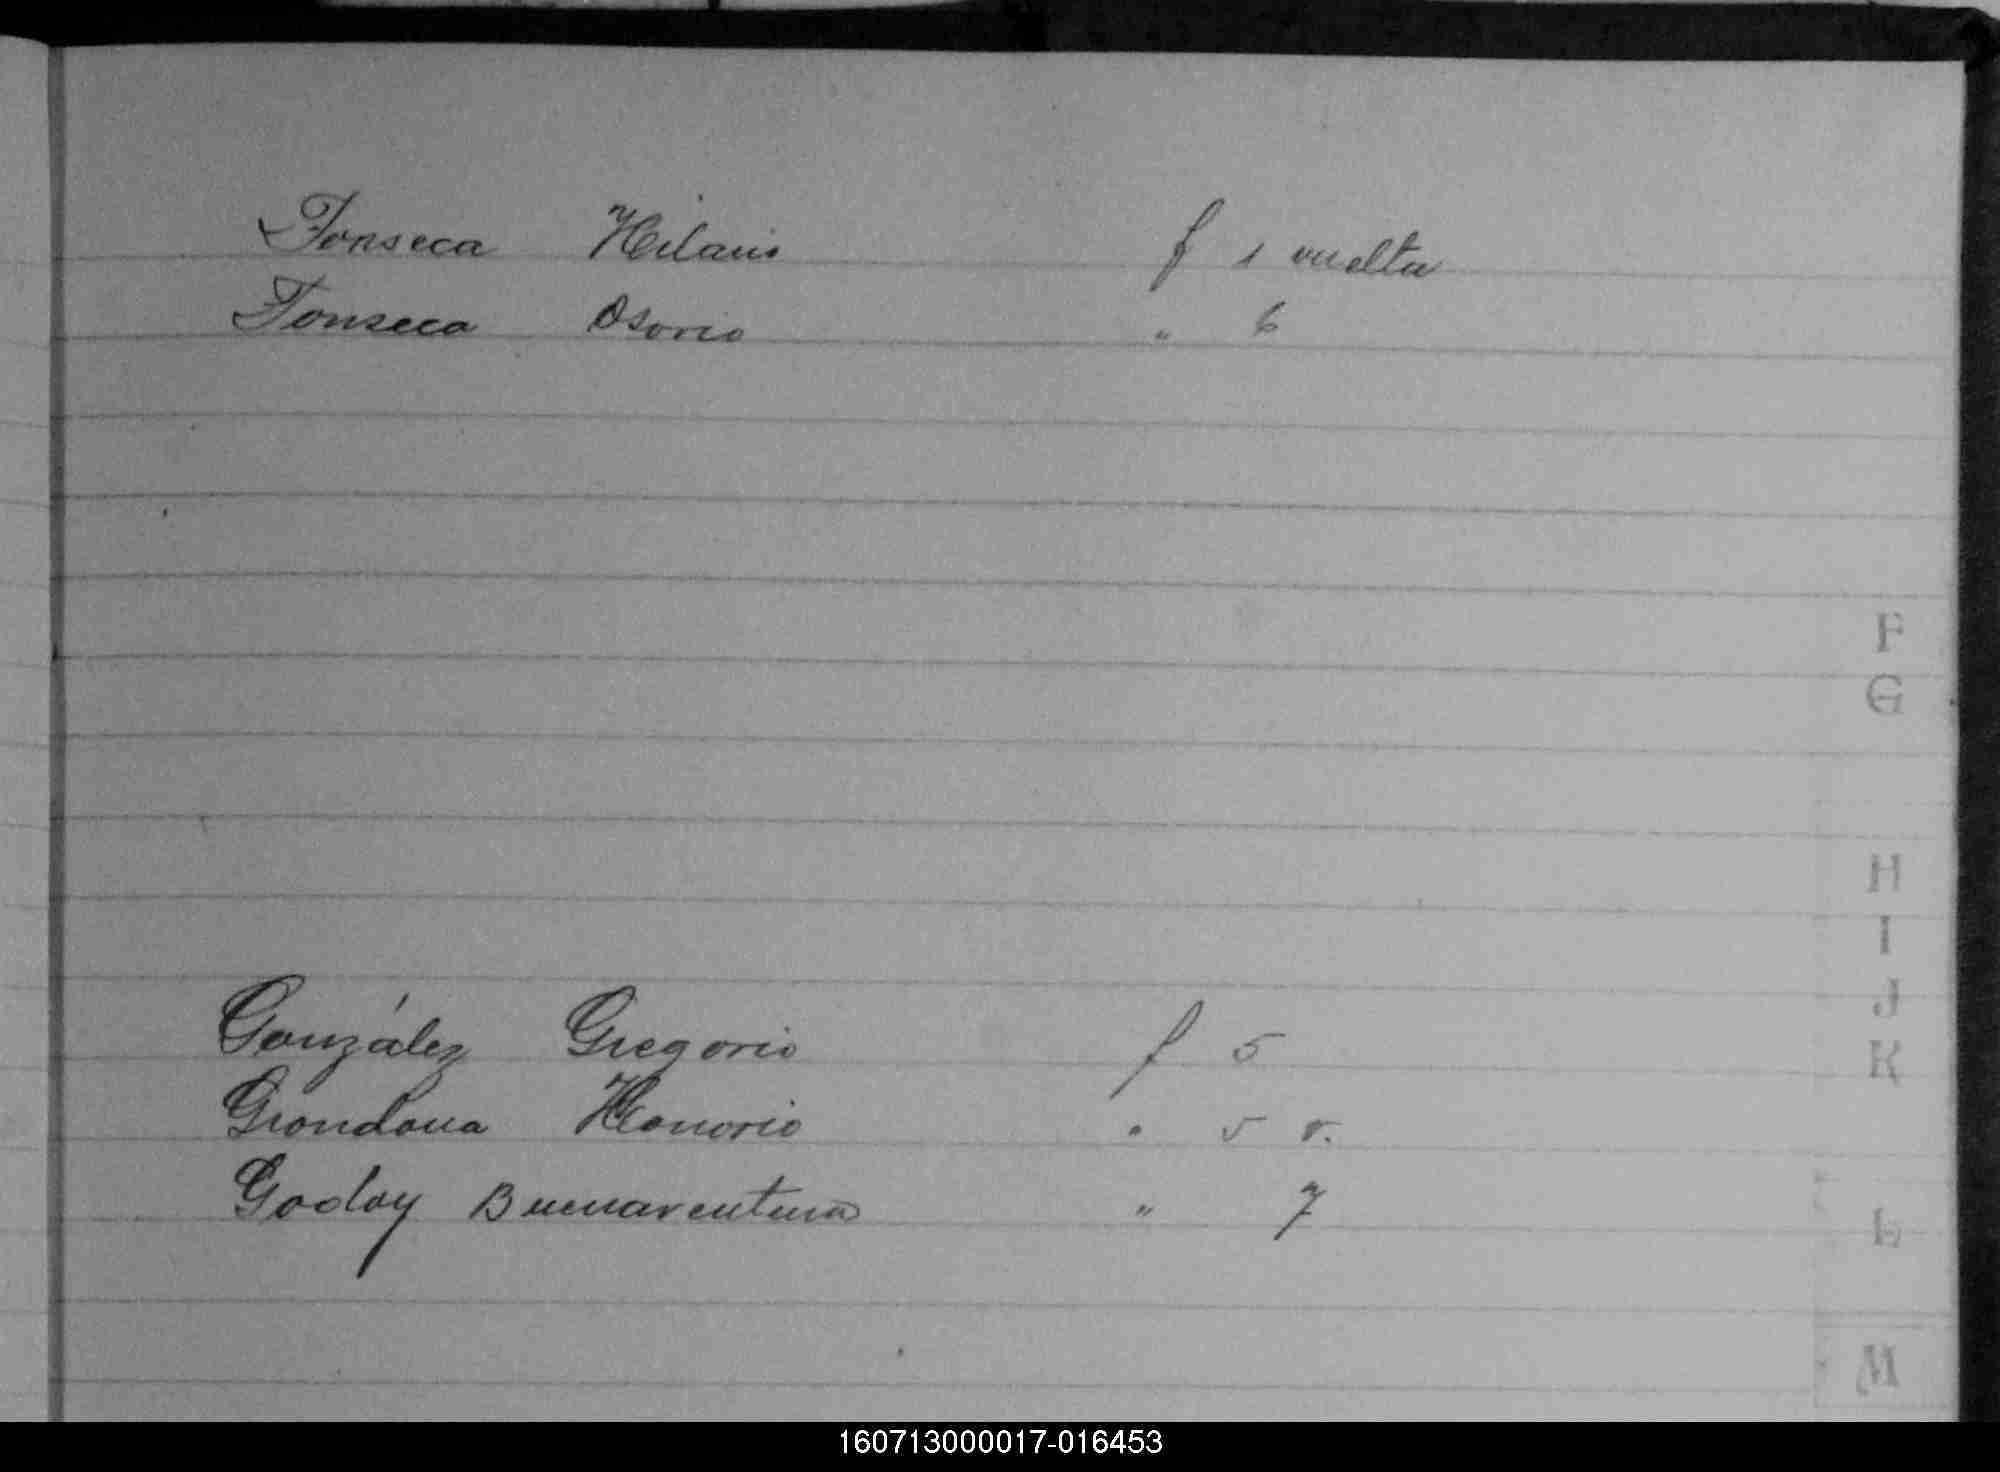 Fonseca Hilario f 1 vuelta
Fonseca Osorio " 6
F
G
H
I
J
González Gregorio f 5
K
Grondona Honorio " 5 v.
Godoy Buenaventura " 7
L
M
160713000017-016453